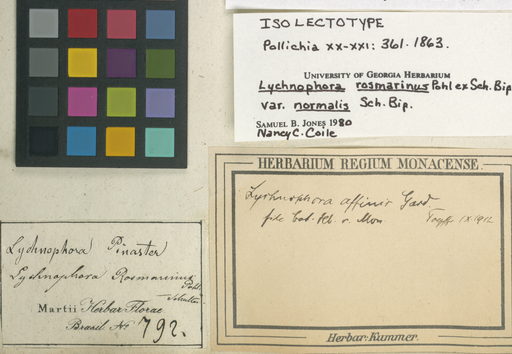 ISOLECTOTYPE
Pollichia XX-XXI: 361. 1863.
UNIVERSITY OF GEORGIA HERBARIUM
Lychnophora rosmarinus Pohl ex Sch. Bip.
var. normalis Sch. Bip.
SAMUEL B. JONES 1980
Nancy C. Coile
HERBARIUM REGIUM MONACENSE.
Lychnophora affinis Gard.
IX 1912
Herbar. Kummer.
Lychnophora Pinaster
Lychnophora Rosmarinus
Pohl
Martii Herbar. Florae
Brasil No 792.